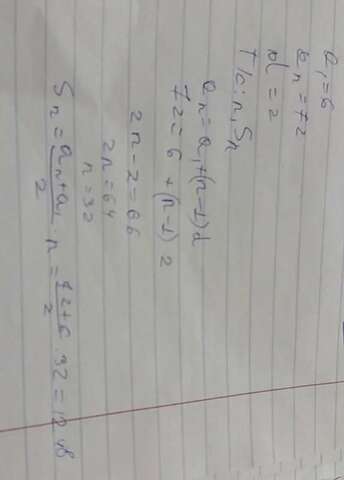 a₁=6
aₙ=72
d=2
T/c: n, Sₙ
aₙ=a₁+(n-1)d
72=6+(n-1)2
2n-2=66
2n=64
n=32
Sₙ=(aₙ+a₁)/2·n=(72+6)/2·32=1248